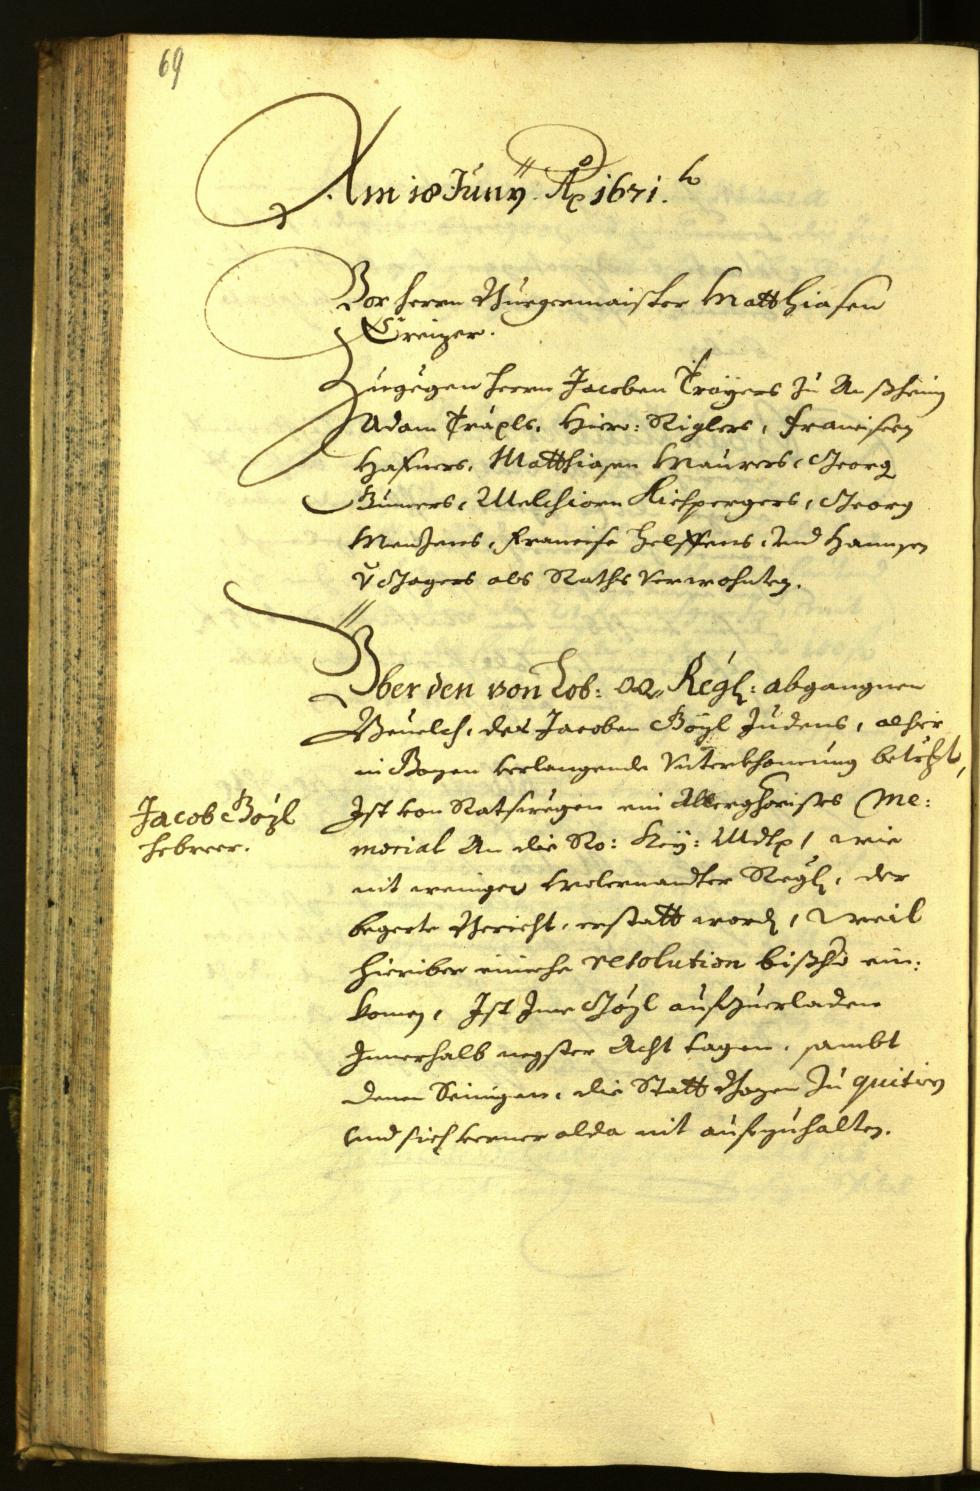 69
Am 18 Juny Ao 1671.
Vor Herrn Burgermaister Matthiasen
Creizer.
Zugegen Herrn Jacoben Tröyers zu
Adam Träpls, Hiero: Riglers, Francisen
Hafners, Matthiasen Maurers, Georg
Melchiorn Kirchpergers, Georg
Menzens, Francisc Helffens, Und Hannsen
Jagers als Raths Verwohnten.
Yber den von Lob: OÖ. Regl: abgangnen
Bevelch, des Jacoben Gözl Judens, alhir
in Bozen verlangende Unterkhomung betrifft,
Jacob Gözl
Hebreer.
Ist von Rats wegen ein Allerghorists Me:
morial An die Ro: Kay: Mdt, wie
nit weniger wolernandter Regl, der
begerte Bericht, erstatt word, weil
hieriber einiche resolution bißher ein:
komen, Ist Ime Gözl aufzuerladen
Innerhalb negster Acht tagen, sambt
denen Seinigen, die Statt Bozen zu quitirn
und sich verner alda nit aufzuhalten.